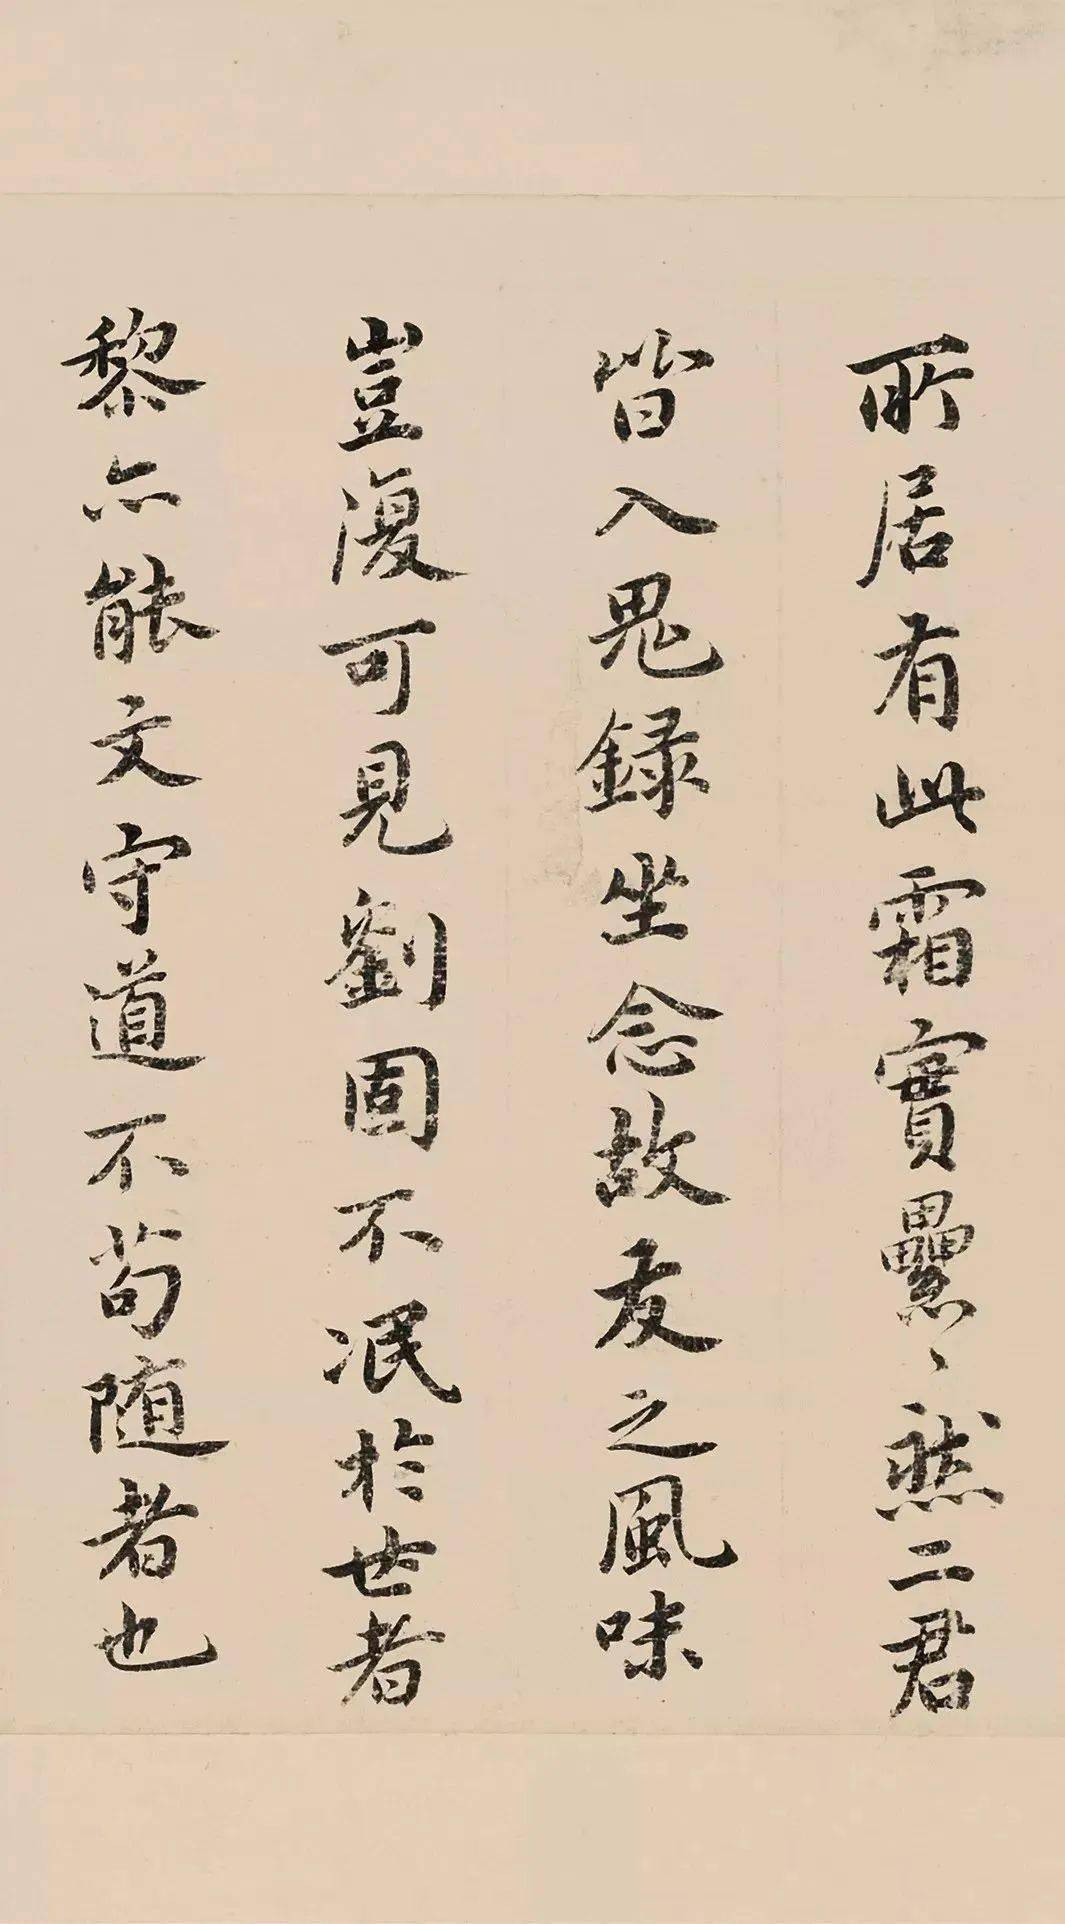 所居有此霜實纍〻然二君
皆入鬼錄坐念故友之風味
豈復可見劉固不泯於世者
黎亦能文守道不苟随者也